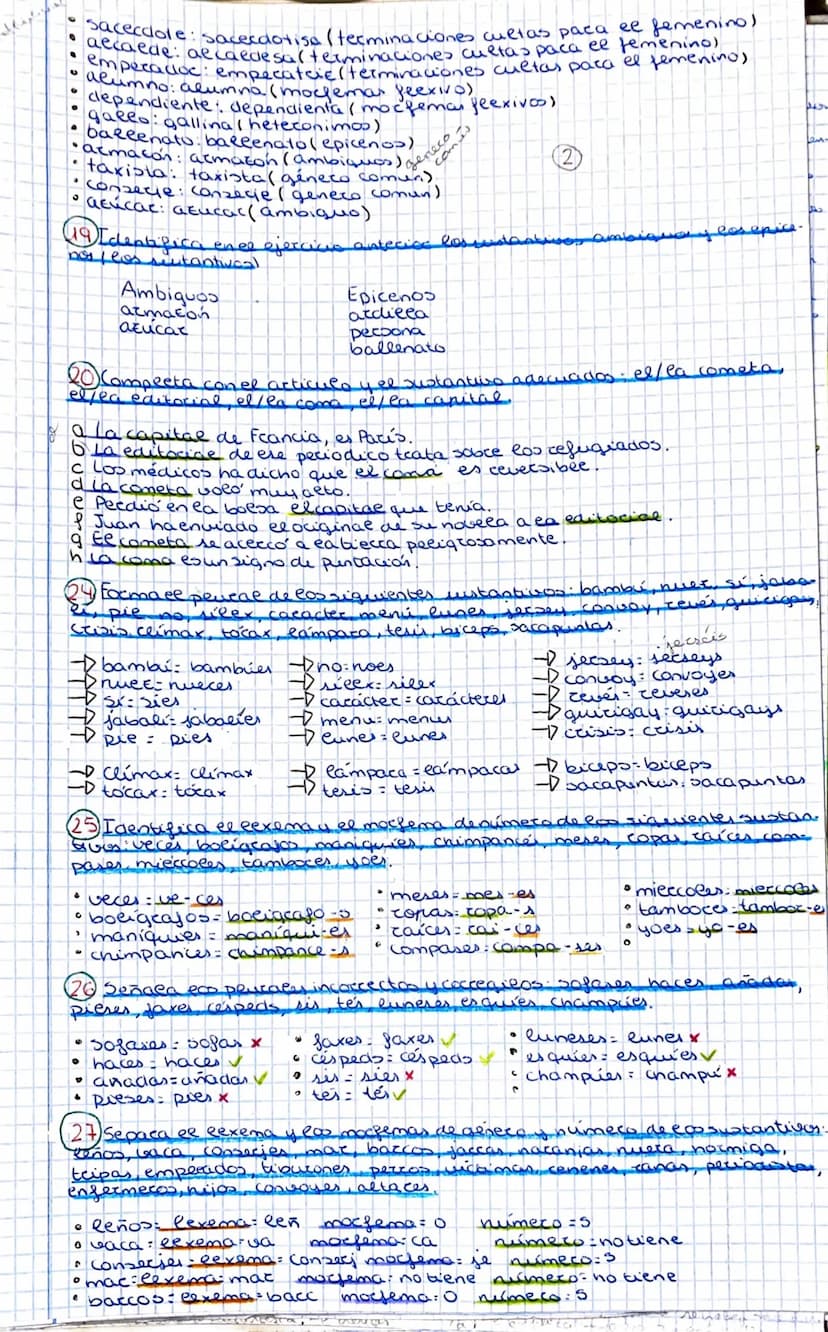 • sacerdote: sacerdotisa (terminaciones cultas para el femenino)
• alcalde: alcaldesa (terminaciones cultas para el femenino)
• emperador: emperatriz (terminaciones cultas para el femenino)
• alumno: alumna (morfemas flexivo)
• dependiente: dependienta (morfemas flexivos)
• gallo: gallina (heteronimos)
• ballenato: ballenato (epicenos)
• armazón: armazón (ambiguos) genero comús
• taxista: taxista (género común)
• conserje: conserje (genero común)
• azúcar: azucar (ambiguo)
2
19) Identifica en el ejercicio anterior los sustantivos ambiguos y los epice-
nos (los sustantivos)
Ambiguos Epicenos
armazón ardilla
azúcar persona
ballenato
20) Completa con el articulo y el sustantivo adecuados: el/la cometa,
el/la editorial, el/la coma, el/la capital.
a La capital de Francia, es París.
b La editorial de ese periodico trata sobre los refugiados.
c Los médicos ha dicho que el coma es reversible.
d La cometa voló muy alto.
e Perdió en la bolsa el capital que tenía.
f Juan ha enviado el original de su novela a la editorial.
g El cometa se acercó a la tierra peligrosamente.
h La coma es un signo de puntación.
24) Forma el plural de los siguientes sustantivos: bambú, nuez, sí, jaba-
lí, pie, no sílex, carácter menú, lunes jersey, convoy, revés, guirigay,
crisis clímax, tórax, lámpara, tesis, biceps, sacapuntas.
bambú: bambúes no: noes jersey: jerseys
nuez = nueces sílex = sílex convoy: convoyes
sí: síes carácter = carácteres revés = reveses
jabalí = jabalíes menu: menus guirigay: guirigays
pie = pies lunes = lunes crisis: crisis
clímax = clímax lámpara = lámparas biceps = biceps
tórax: tórax tesis = tesis sacapuntas: sacapuntas
25) Identifica el lexema y el morfema de número de los siguientes sustan
tivos: veces, bolígrafos, maniquíes, chimpancés, meses, copas, raíces com-
pases, miercoles, tambores, yoes.
• veces = ve-ces • meses = mes-es • miercoles: miercoles
• bolígrafos = boligrafo-s • copas: copa-s • tambores: tambor-es
• maníquies = maníqui-es • raíces = rai-ces • yoes = yo-es
• chimpances = chimpance-s • compases: compa-ses
26) Señala los plurales incorrectos y corregilos: sofases, haces, añadas,
pieses, faxes, céspeds, sis, tés, luneses, esquíes, champúes.
• sofases = sofas x • faxes = faxes ✓ • luneses = lunes x
• haces = haces ✓ • céspeds = céspeds ✓ • esquíes = esquíes ✓
• añadas = añadas ✓ • sis = sies x • champúes = champú x
• pieses = pies x • tés = tés ✓
27) Separa el lexema y los morfemas de género y número de los sustantivos:
leños, vaca, conserjes, mar, barcos, jarras, naranjas, nuera, hormiga,
tripas, emperados, tiburones, perros, víctimas, cenenes, ranas, periodistas,
enfermeros, hijos, convoyes, altares.
• leños = lexema = leñ morfema = o número = s
• vaca = lexema = va morfema: ca número: no tiene
• conserjes = lexema = conserj morfema = je número = s
• mar = lexema: mar morfema: no tiene número = no tiene
• barcos = lexema = barc morfema: o número: s